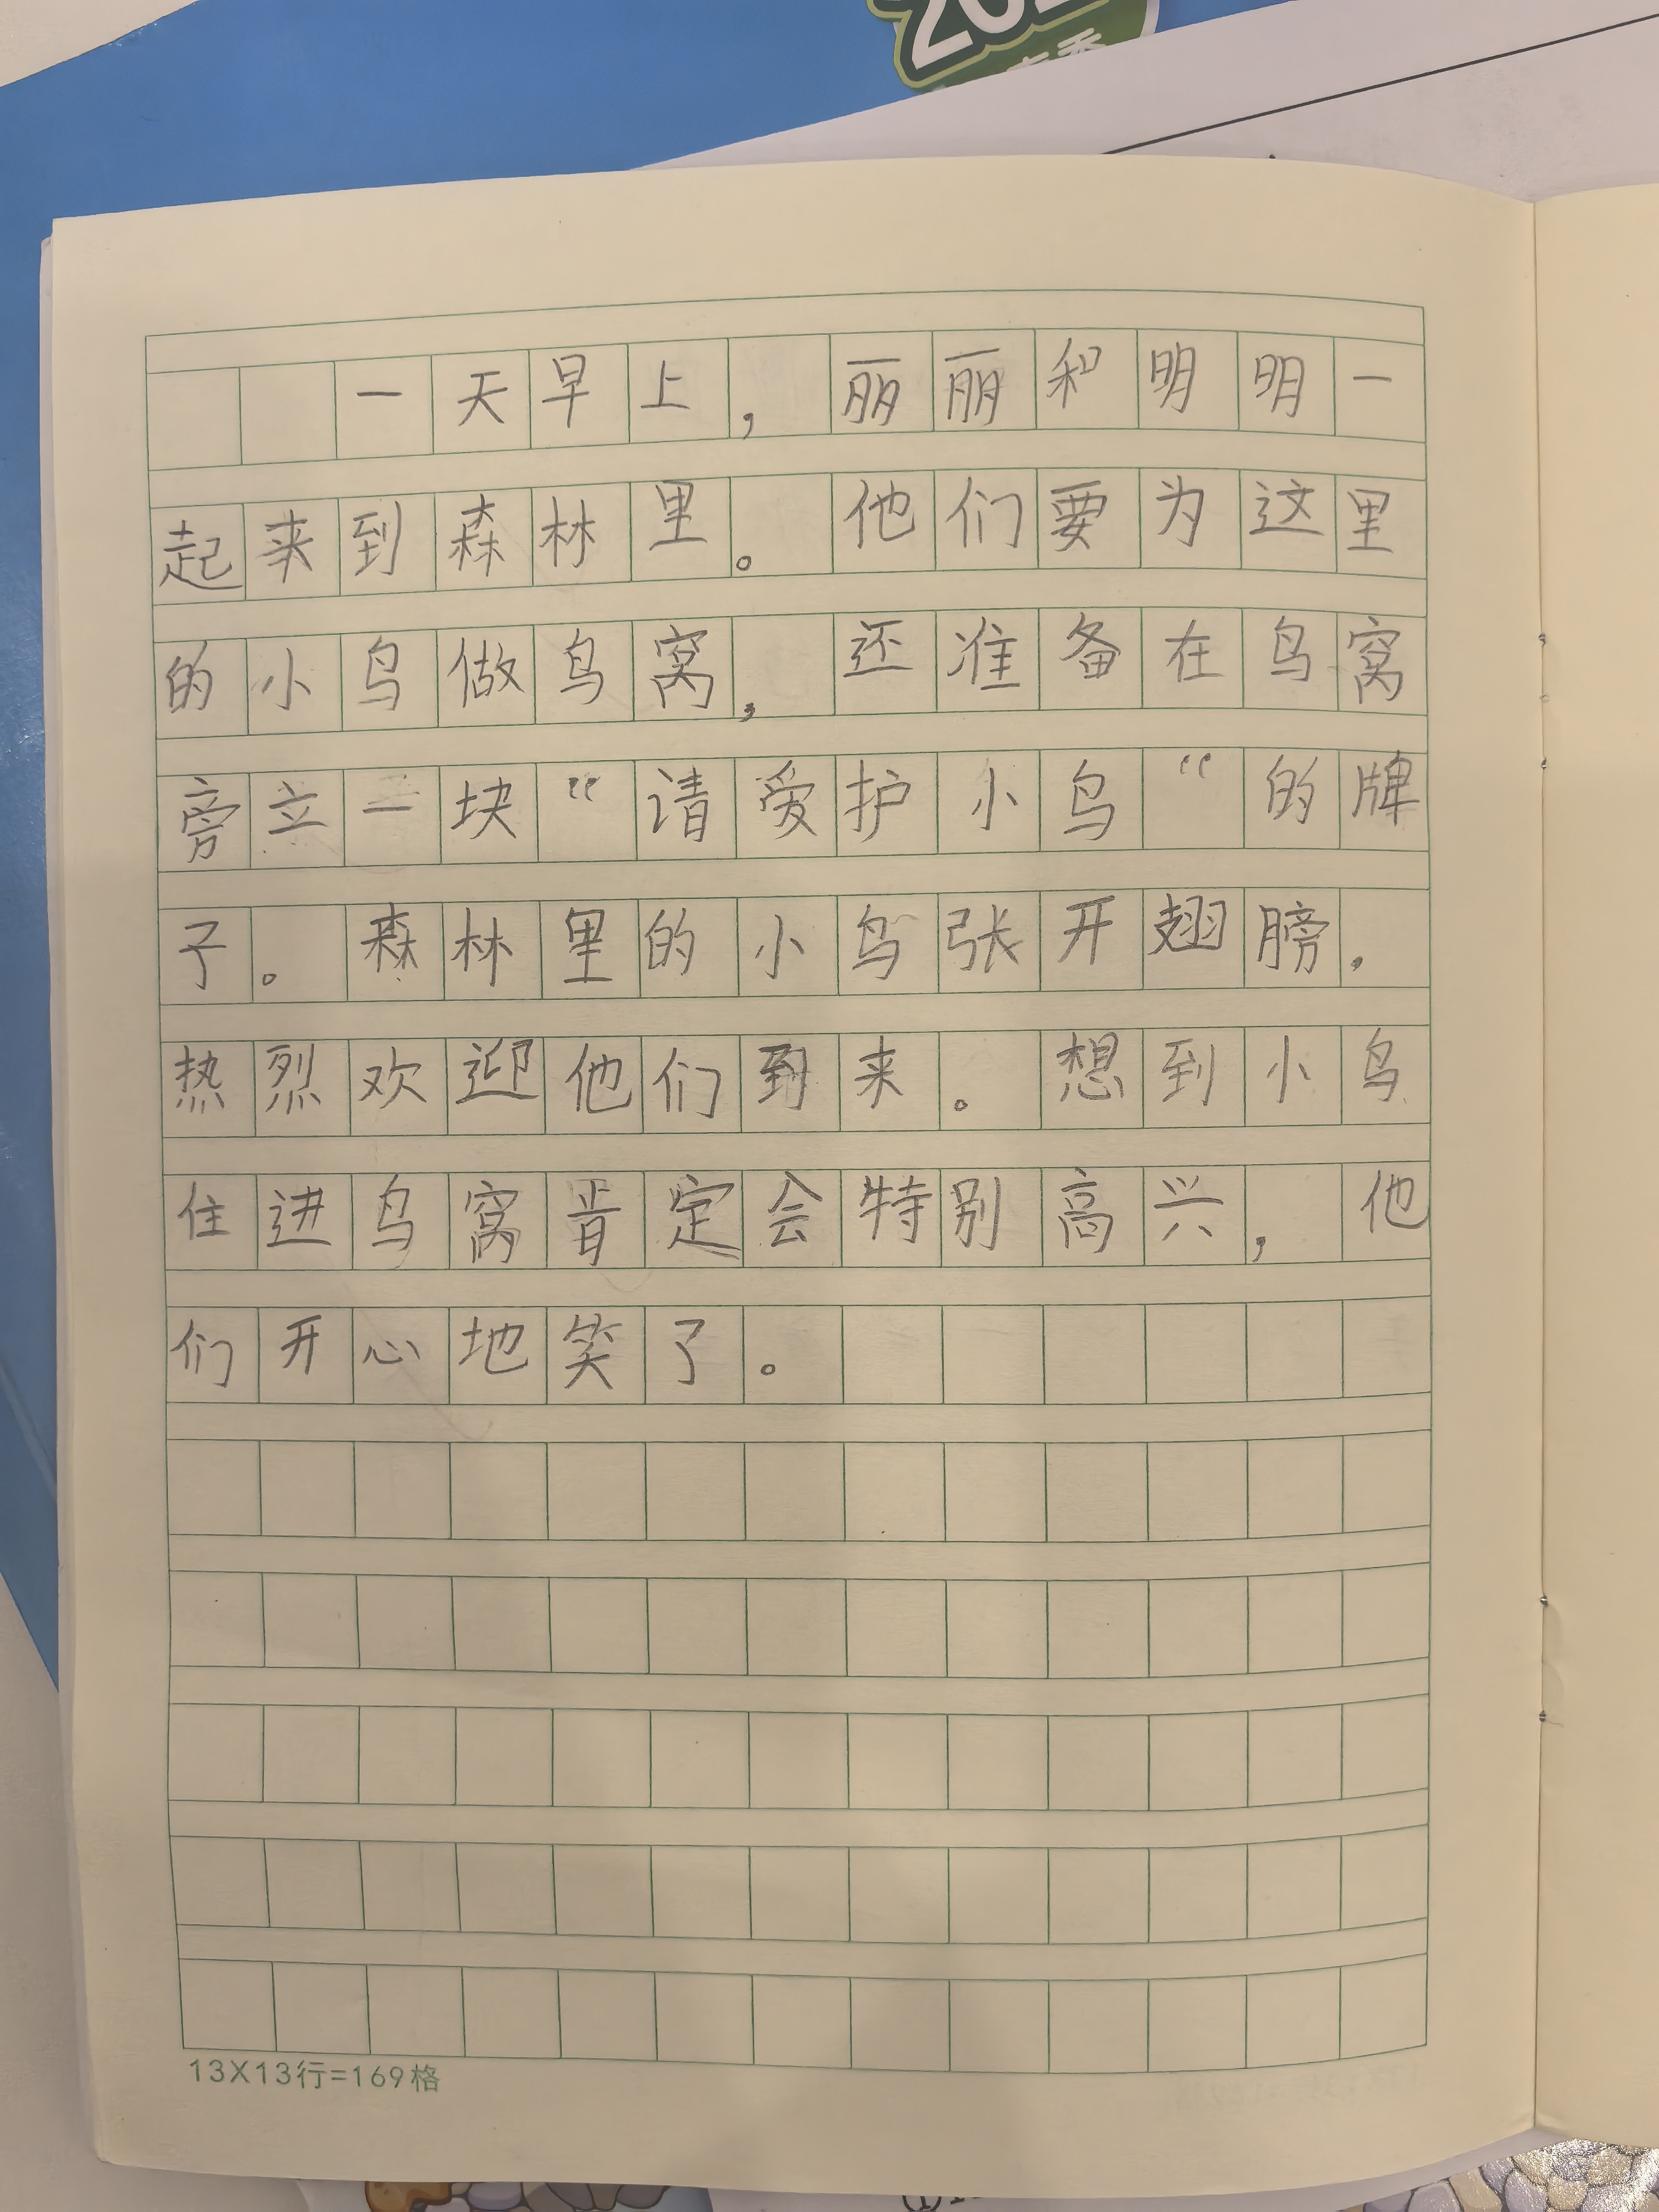 一天早上，丽丽和明明一
起来到森林里。他们要为这里
的小鸟做鸟窝，还准备在鸟窝
旁立一块“请爱护小鸟“的牌
子。森林里的小鸟张开翅膀，
热烈欢迎他们到来。想到小鸟
住进鸟窝肯定会特别高兴，他
们开心地笑了。
13X13行=169格